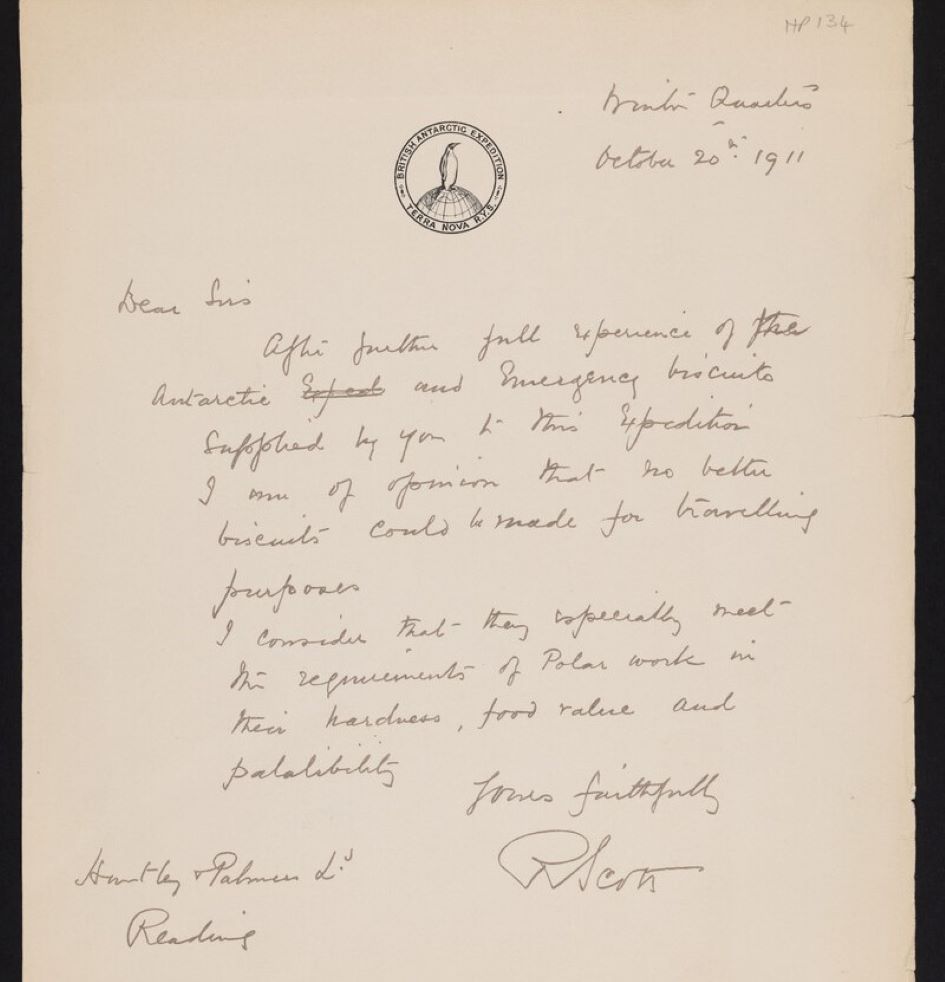 HP 134
Winter Quarters
October 20th. 1911
BRITISH ANTARCTIC EXPEDITION
TERRA NOVA R.Y.S.
Dear Sirs
After further full experience of the
Antarctic Exped and Emergency biscuits
supplied by you to this Expedition
I am of opinion that no better
biscuits could be made for travelling
purposes
I consider that they especially meet
the requirements of Polar work in
their hardness, food value and
palatibility
Yours faithfully
RScott
Huntley & Palmers Ld
Reading